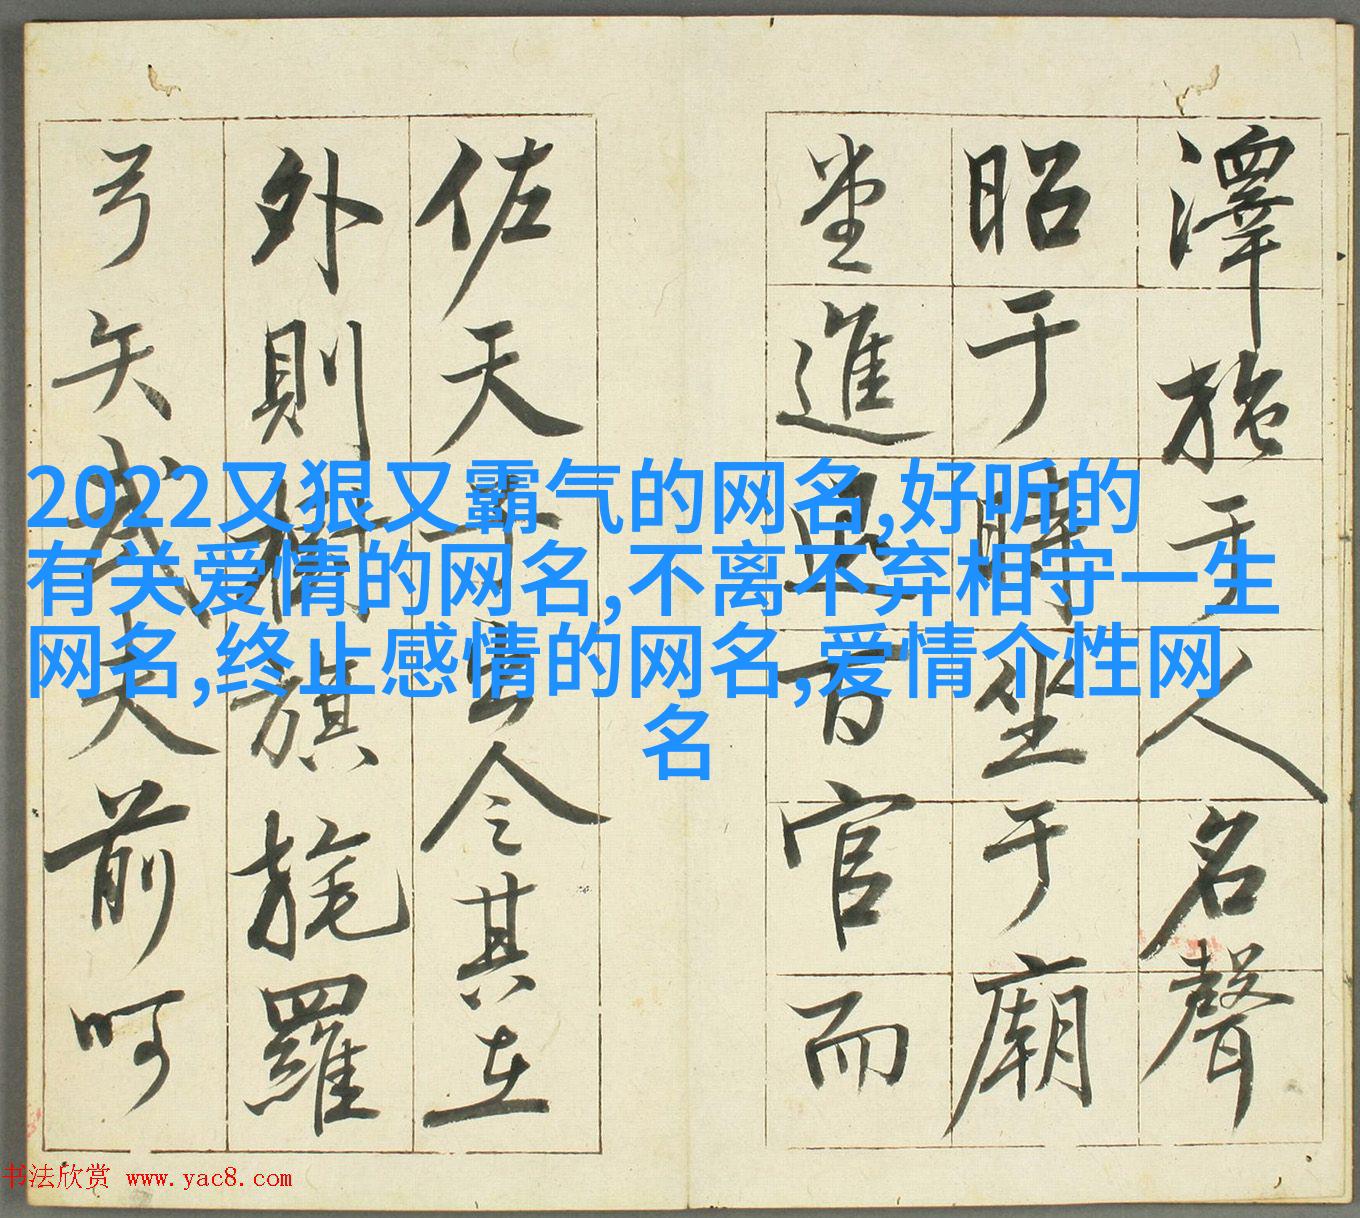 澤施于人名聲
昭于時坐于廟
堂進退百官而
佐天子出令其在
外則樹旗旄羅
弓矢武夫前呵
2022又狠又霸气的网名,好听的
有关爱情的网名,不离不弃相守一生
网名,终止感情的网名,爱情个性网
名
书法欣赏 www.yac8.com